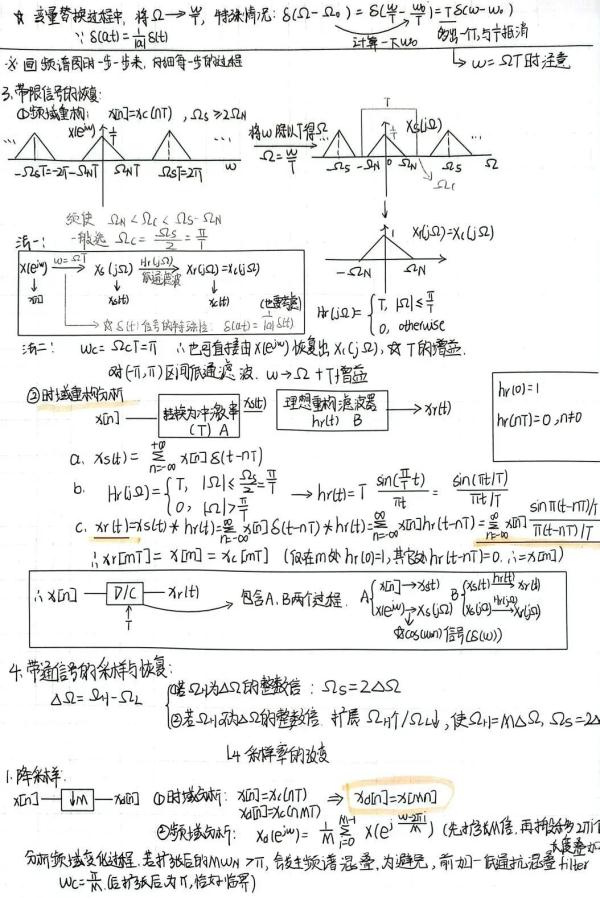 ☆ 变量替换过程中, 将Ω→w/T, 特殊情况: δ(Ω-Ω₀) = δ(w/T - w₀/T) = Tδ(w-w₀)
∵ δ(at) = 1/|a| δ(t)
计算一下w₀
多出一个T, 与1/T抵消
※ 画频谱图时一步一步来, 仔细每一步的过程
↳ w = ΩT时注意
3. 带限信号的恢复:
①频域重构: x[n]=xc(nT), Ωs ≥ 2ΩN
X(e^jw) 1/T
将w除以T得Ω
Ω = w/T
T
1/T Xs(jΩ)
-ΩsT=-2π -ΩNT ΩNT ΩsT=2π w
Ωs -ΩN 0 ΩN Ωs Ω
Ωc
须使 ΩN < Ωc < Ωs-ΩN
一般选 Ωc = Ωs/2 = π/T
1 Xr(jΩ)=Xc(jΩ)
-ΩN ΩN
法一:
X(e^jw) w=ΩT→ Xs(jΩ) Hr(jΩ)→ 低通滤波 Xr(jΩ)=Xc(jΩ)
↓ x[n] ↓ xs(t) ↓ xc(t)
→ ☆ δ(t)信号的特殊性: δ(at) = 1/|a| δ(t)
Hr(jΩ) = { T, |Ω| ≤ π/T
0, otherwise
法二: wc = ΩcT=π ∴也可直接由X(e^jw)恢复出Xc(jΩ), ☆ T的增益.
对(-π,π)区间低通滤波. w→Ω + T增益
②时域重构分析
x[n] — 转换为冲激串 (T) A — xs(t) — 理想重构滤波器 hr(t) B → xr(t)
hr(0)=1
hr(nT)=0, n≠0
a. xs(t) = Σ_{n=-∞}^{+∞} x[n] δ(t-nT)
b. Hr(jΩ) = { T, |Ω| ≤ Ωs/2 = π/T
0, |Ω| > π/T
→ hr(t) = T sin(π/T t)/πt = sin(πt/T)/(πt/T)
c. xr(t)=xs(t)*hr(t)=Σ_{n=-∞}^{∞} x[n]δ(t-nT)*hr(t)=Σ_{n=-∞}^{∞} x[n]hr(t-nT)=Σ_{n=-∞}^{∞} x[n] sinπ(t-nT)/T / π(t-nT)/T
∴ xr[mT] = x[m] = xc[mT] (仅在m处hr(0)=1, 其它处hr(t-nT)=0. ∴=x[m])
∴ x[n] — D/C → xr(t)
↑ T
包含A.B两个过程.
A { x[n]→xs(t)
X(e^jw)→Xs(jΩ)
B { xs(t) hr(t)→ xr(t)
Xs(jΩ) Hr(jΩ)→ Xr(jΩ)
☆cos(w₀n)信号(δ(w))
4. 带通信号的采样与恢复:
ΔΩ = ΩH-ΩL
①若ΩH为ΔΩ的整数倍: Ωs = 2ΔΩ
②若ΩH不为ΔΩ的整数倍, 扩展 ΩH↑/ΩL↓, 使ΩH=MΔΩ, Ωs=2Δ
L4 采样率的改变
1. 降采样.
x[n] — ↓M — xd[n]
①时域分析: x[n]=xc(nT) ⇒ xd[n]=x[Mn]
xd[n]=xc(nMT)
②频域分析: Xd(e^jw) = 1/M Σ_{i=0}^{M-1} X(e^{j (w-2πi)/M}) (先扩张M倍, 再
分析频域变化过程. 若扩张后的MwN > π, 会发生频谱混叠. 为避免, 前加一低通抗混叠filter
wc = π/M (后扩张后为π, 恰好临界)